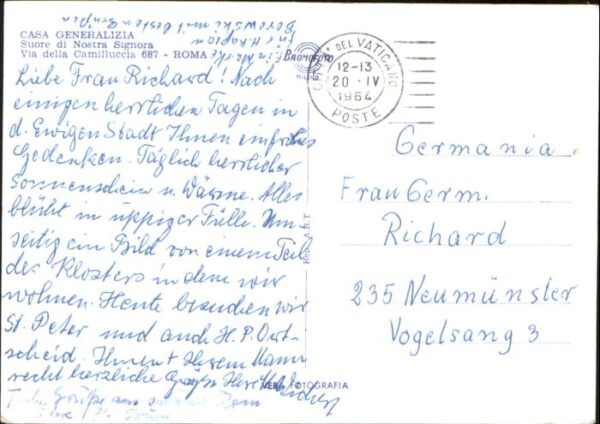 CASA GENERALIZIA
Suore di Nostra Signora
Via della Camilluccia 687 - ROMA
Liebe Frau Richard! Nach
einigen herrlichen Tagen in
d. Ewigen Stadt Ihnen ein frohes
Gedenken. Täglich herrlicher
Sonnenschein u. Wärme. Alles
blüht in üppiger Fülle. Um-
seitig ein Bild von einem Teil
des Klosters in dem wir
wohnen. Heute besuchen wir
St. Peter und auch H. P.
scheid. Ihnen u. Ihrem Mann
recht herzliche Grüße Ihre
Grüße aus
mit besten
BROMOFOTO
MILANO
DEL VATICANO
12-13
20 · IV
1964
POSTE
Germania
Frau Germ.
Richard
235 Neumünster
Vogelsang 3
VERA FOTOGRAFIA